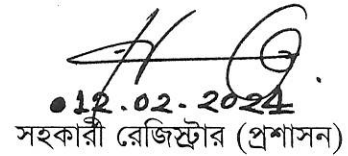 12.02.2024
সহকারী রেজিস্ট্রার (প্রশাসন)